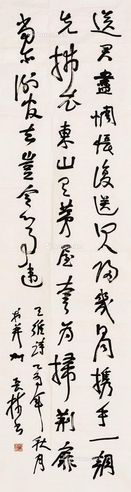 送君盡惆悵復送何人歸幾日同携手一朝
先拂衣東山有茅屋幸為掃荆扉
當亦謝官去豈令心事違
王維詩乙酉年秋月